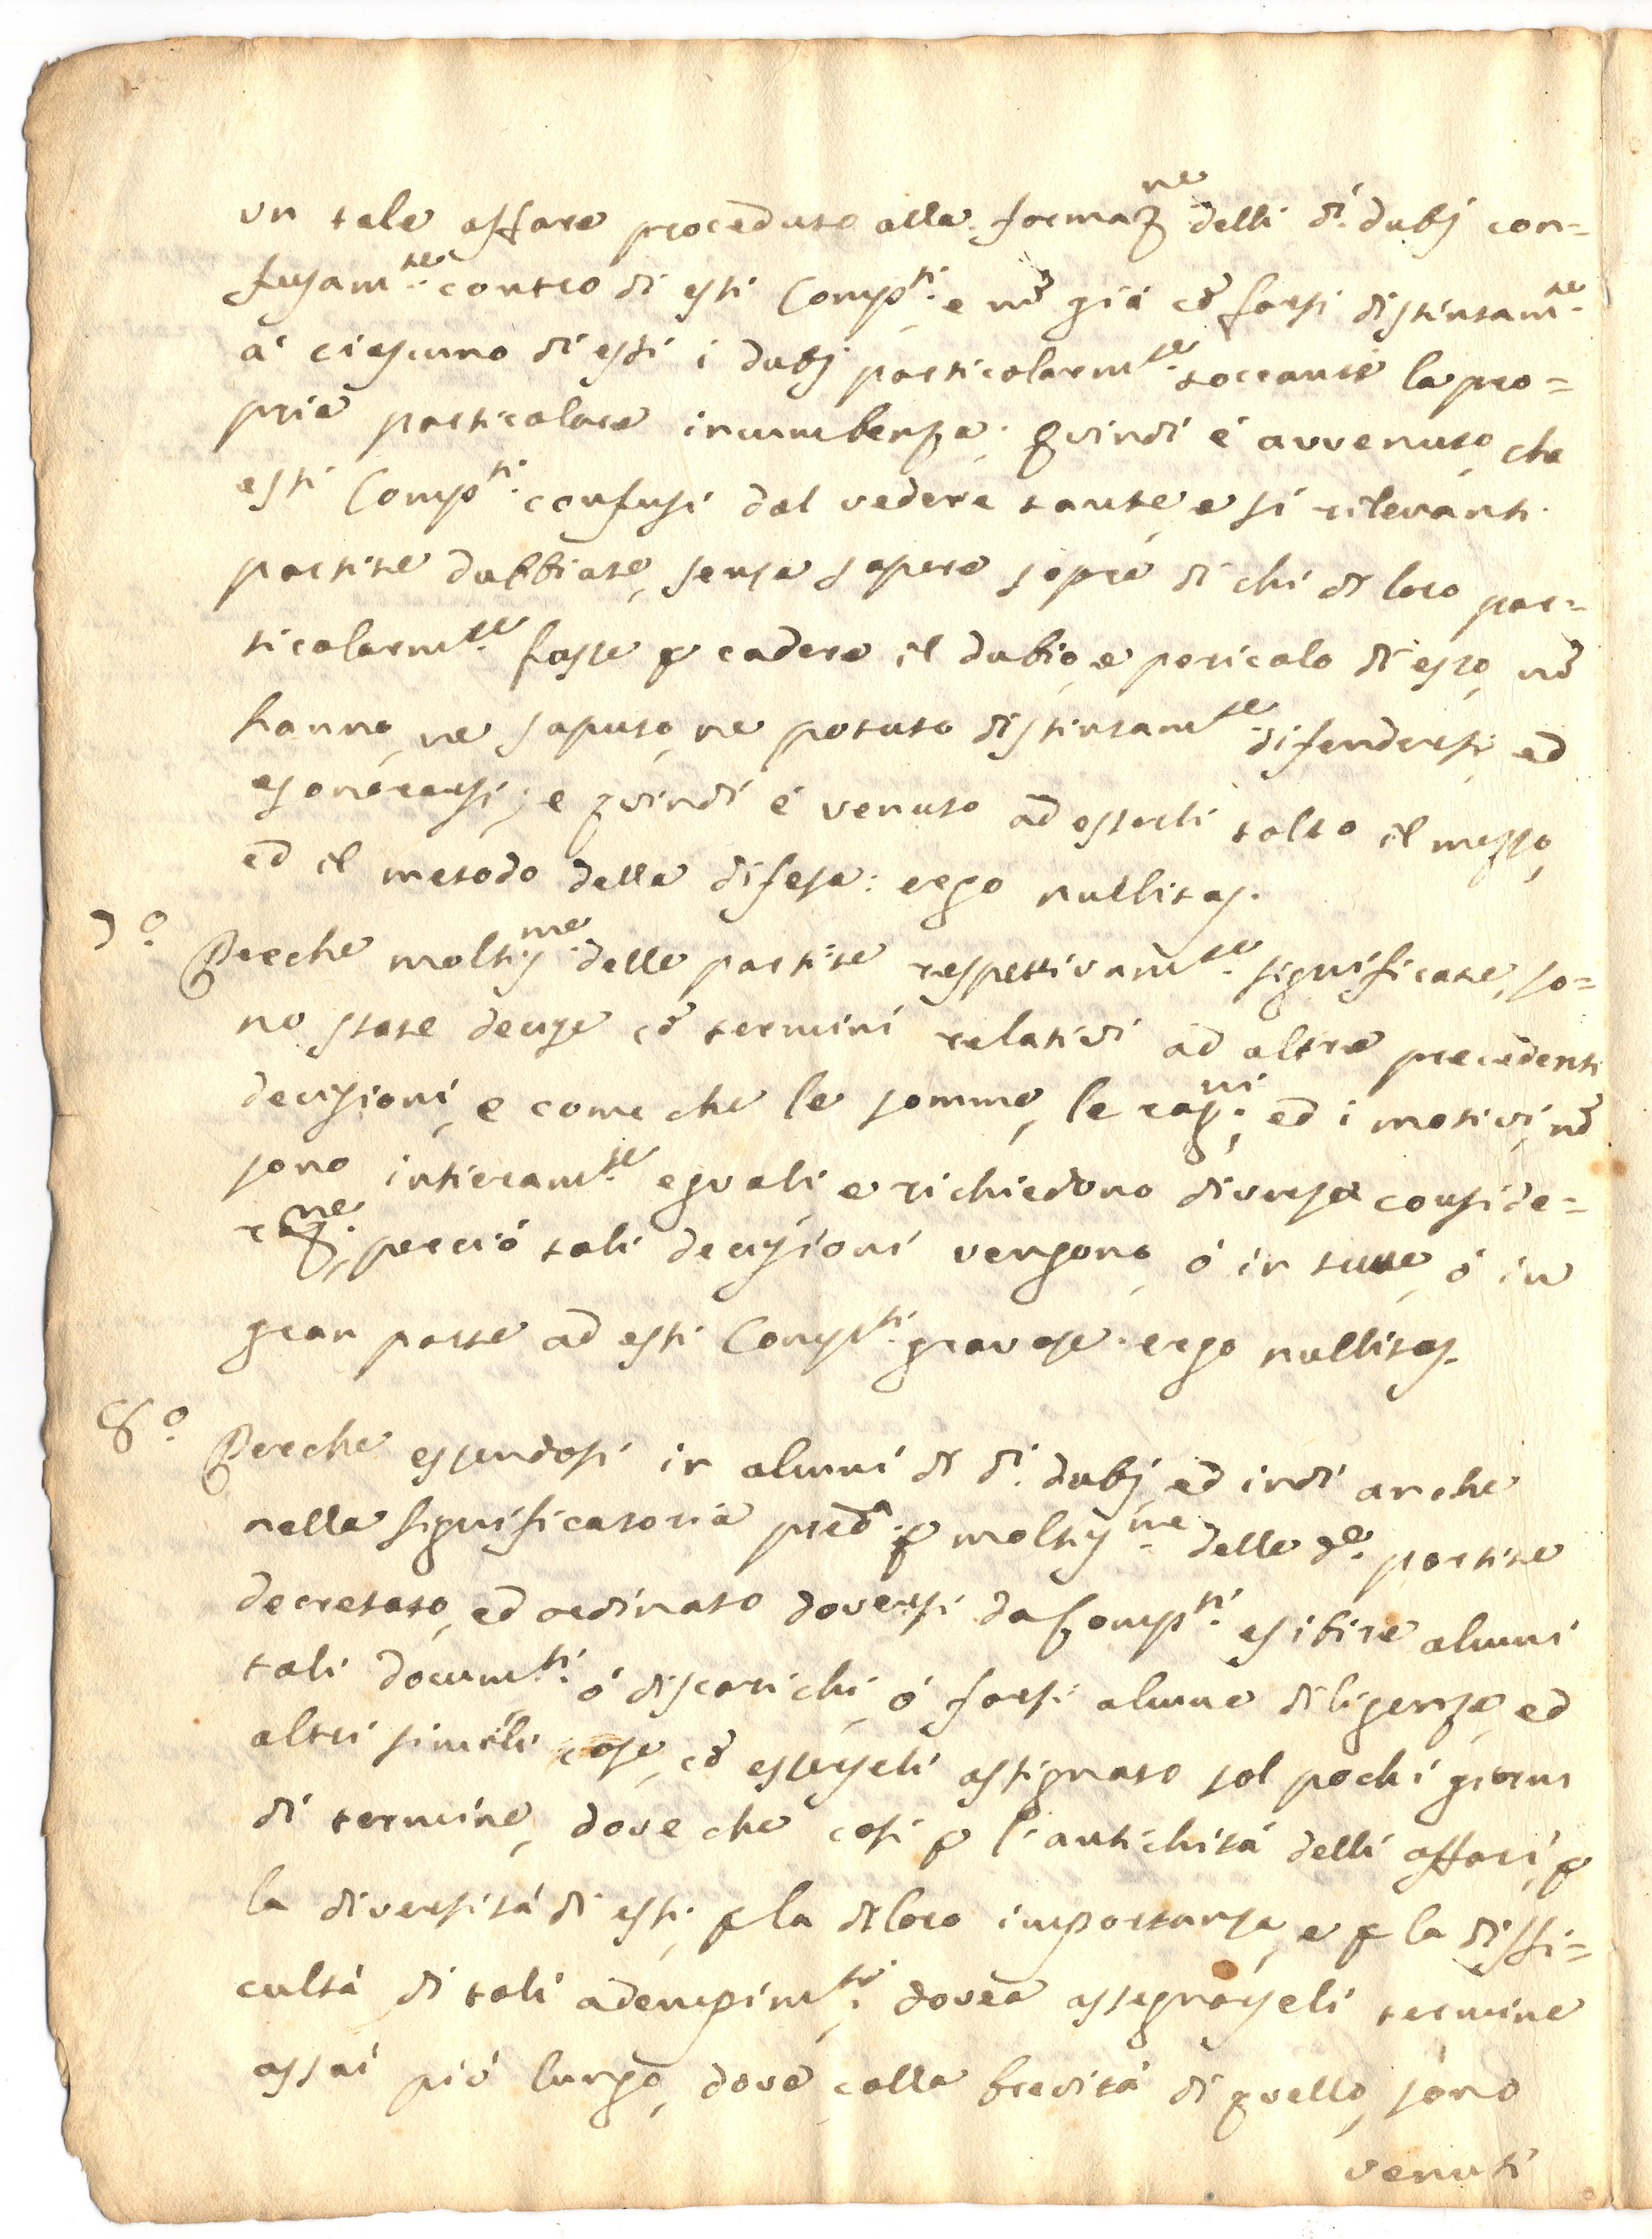 un tale affare proceduto alla formaz.ne delli d.i dubj con=
fusam.te contro di essi Comp.ti, e nõ già cõ farsi distintam.te
a' ciascuno di essi i dubj particolarm.te toccanti la pro=
pria particolare incumbenza; quindi é avvenuto, che
essi Comp.ti confusi dal vedere tante, e sì rilevanti
partite dubbiate, senza sapere sopra di chi di loro par=
ticolarm.te fosse p cadere il dubio, e pericolo di esso, nõ
hanno, ne saputo, ne potuto distintam.te difendersi, ed
esonerarsi; e quindi é venuto ad esserli tolto il mezzo,
ed il metodo della difesa: ergo nullitas.
7.º Perche moltiss.me delle partite respettivam.te significate, so=
no state decise cõ termini relativi ad altre precedenti
decisioni, e come che le somme, le rag.ni, ed i motivi, nõ
sono intieram.te eguali, e richiedono diversa conside=
raz.ne, perciò tali decisioni vengono, ó in tutte, ó in
gran parte ad essi Comp.ti gravose. ergo nullitas.
8.º Perche essendosi in alcuni di d.i dubj, ed indi anche
nella significatoria pred.a p moltiss.me delle d.e partite
decretato, ed ordinato doversi da Comp.ti esibire alcuni
tali docum.ti, ó discarichi, ó farsi alcune diligenze, ed
altri simili cose, cõ esserseli assignato sol pochi giorni
di termine, dove che così p l'antichità delli affari, p
la diversità di essi, p la di loro importanza, e p la diffi=
cultà di tali adempim.ti, dovea assegnarseli termine
assai più lungo, dove colla brevità di quello, sono
venuti